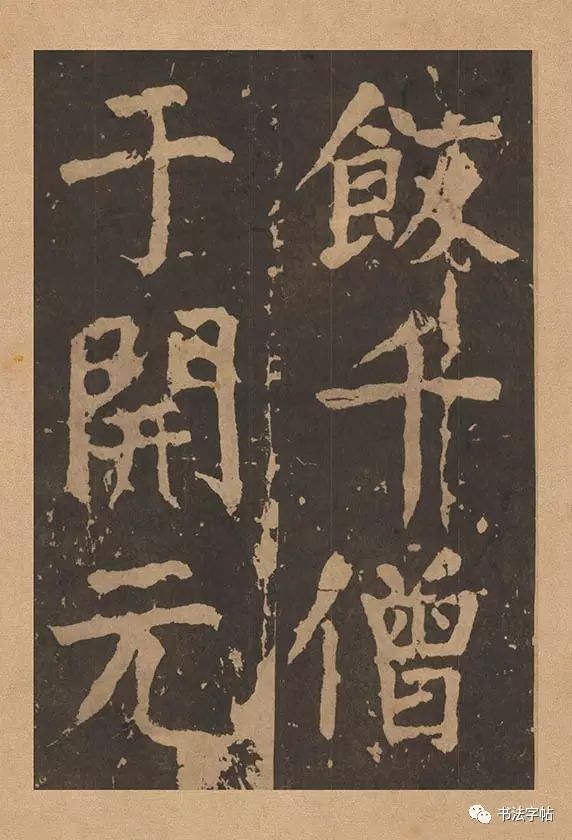 飯千僧
于開元
书法字帖